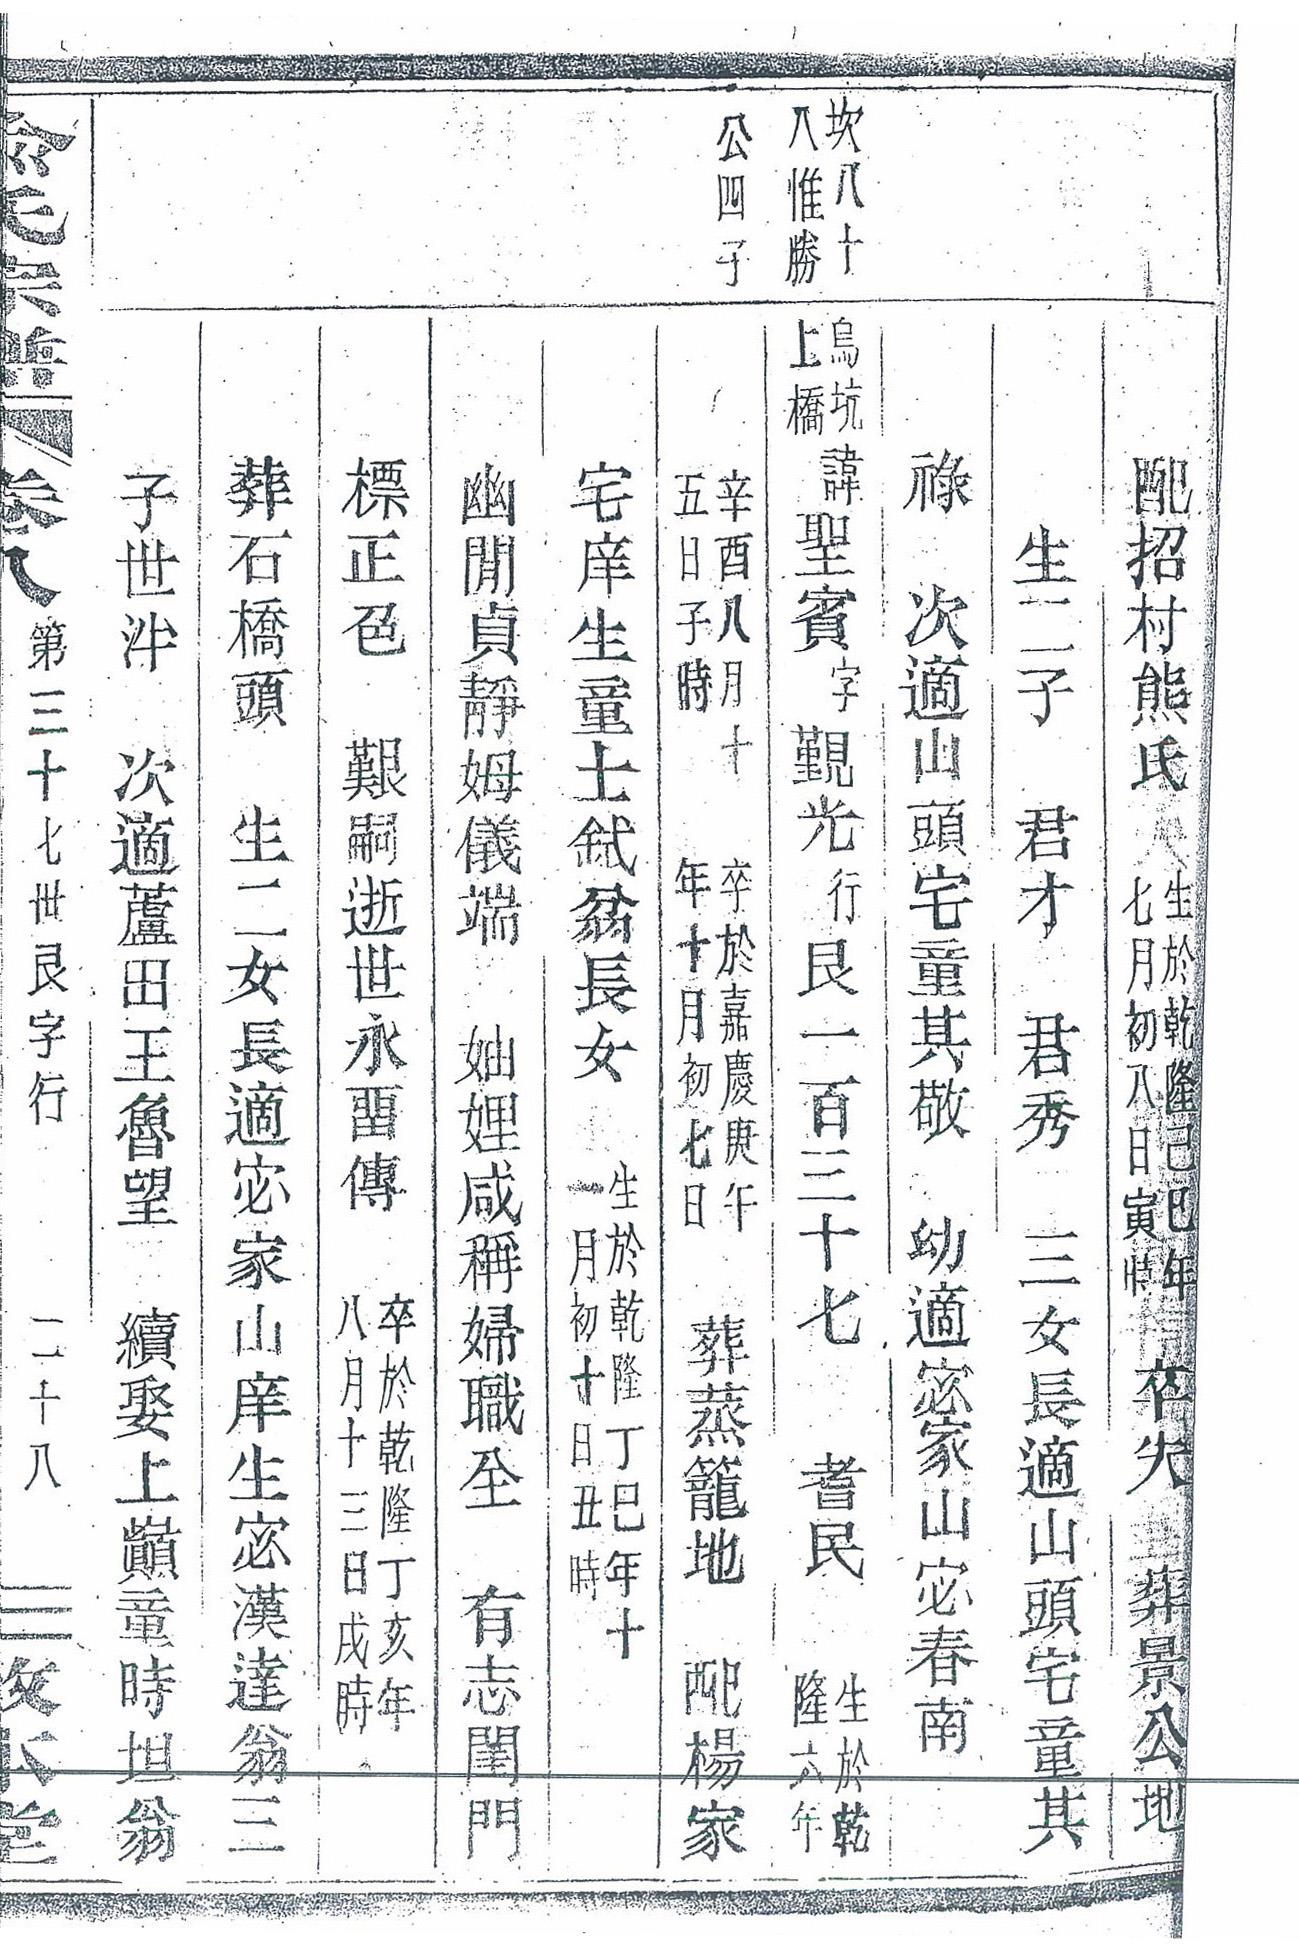 配招村熊氏 生於乾隆己巳年七月初八日寅時 卒失 葬景公地
生二子 君才 君秀 三女長適山頭宅童其
祿 次適山頭宅童其敬 幼適宓家山宓春南
坎八十八惟勝公四子
烏坑上橋 諱聖賓字觐光行艮一百三十七 耆民 生於乾隆六年
辛酉八月十五日子時 卒於嘉慶庚午年十月初七日 葬蒸籠地 配楊家
宅庠生童土鉽翁長女 生於乾隆丁巳年十一月初十日丑時
幽閒貞靜姆儀端 妯娌咸稱婦職全 有志閨門
標正色 艱嗣逝世永畱傳 卒於乾隆丁亥年八月十三日戌時
葬石橋頭 生二女長適宓家山庠生宓漢達翁三
子世泮 次適蘆田王魯望 續娶上巔童時坦翁
俞氏宗譜 卷八 第三十七世艮字行 二十八 敦本堂